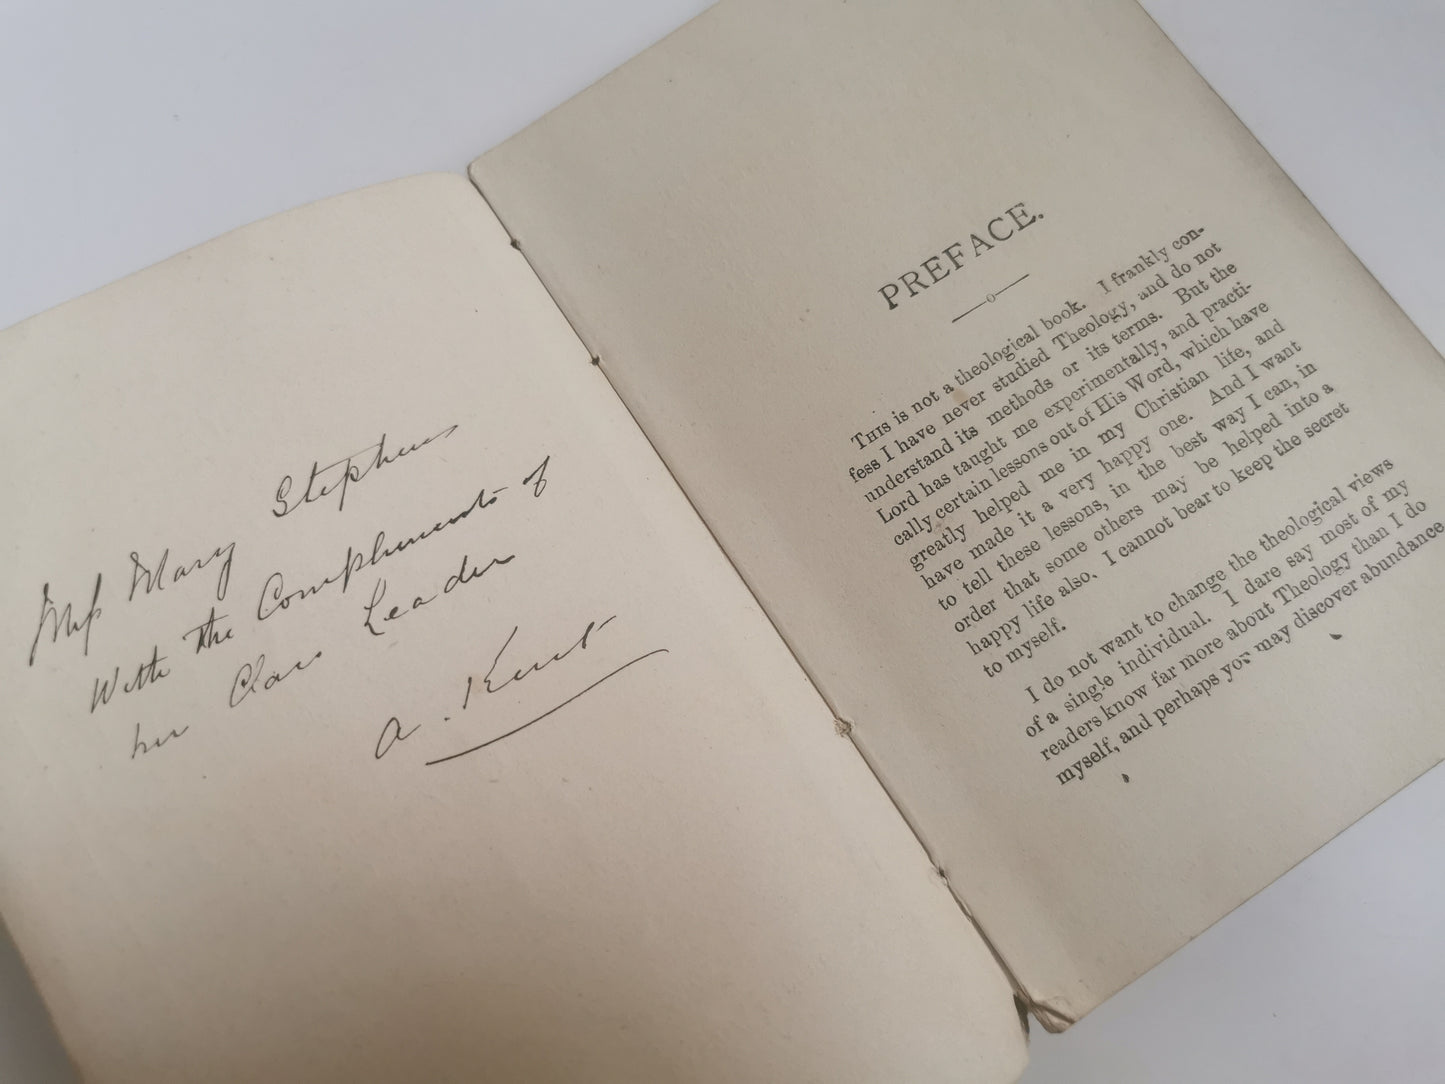 Miss Mary Stephens
With the Compliments of
her Class Leader
A. Kent
PREFACE.
THIS is not a theological book. I frankly con-
fess I have never studied Theology, and do not
understand its methods or its terms. But the
Lord has taught me experimentally, and practi-
cally certain lessons out of His Word, which have
greatly helped me in my Christian life, and
have made it a very happy one. And I want
to tell these lessons, in the best way I can, in
order that some others may be helped into a
happy life also. I cannot bear to keep the secret
to myself.
I do not want to change the theological views
of a single individual. I dare say most of my
readers know far more about Theology than I do
myself, and perhaps you may discover abundance